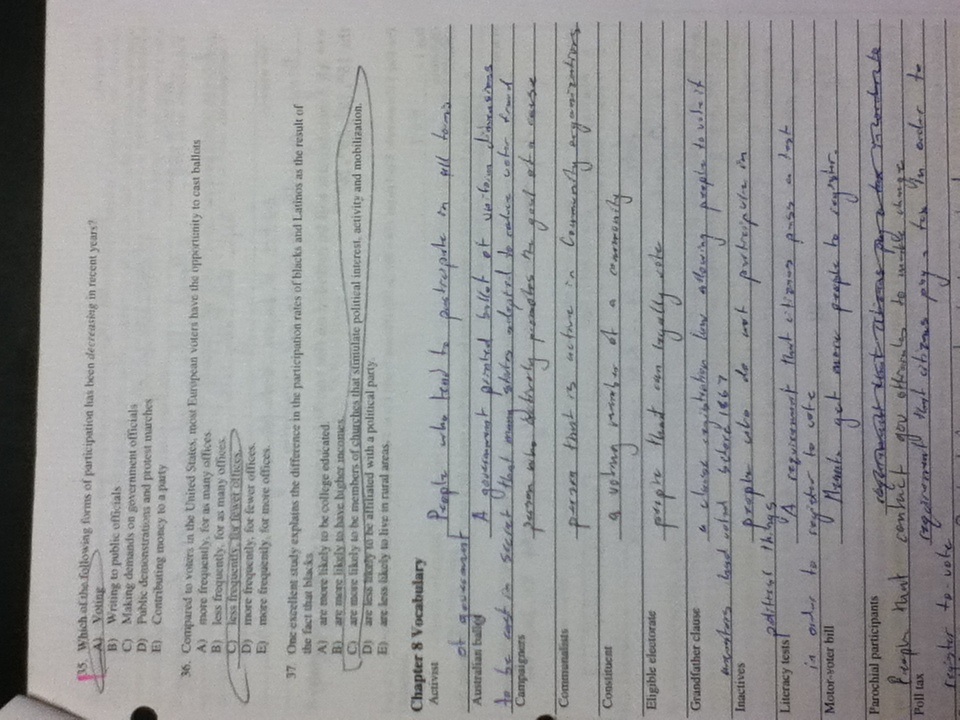 35. Which of the following forms of participation has been decreasing in recent years?
A) Voting
B) Writing to public officials
C) Making demands on government officials
D) Public demonstrations and protest marches
E) Contributing money to a party
36. Compared to voters in the United States, most European voters have the opportunity to cast ballots
A) more frequently, for as many offices.
B) less frequently, for as many offices.
C) less frequently, for fewer offices.
D) more frequently, for fewer offices.
E) more frequently, for more offices.
37. One excellent study explains the difference in the participation rates of blacks and Latinos as the result of
the fact that blacks
A) are more likely to be college educated.
B) are more likely to have higher incomes.
C) are more likely to be members of churches that stimulate political interest, activity and mobilization.
D) are less likely to be affiliated with a political party.
E) are less likely to live in rural areas.
Chapter 8 Vocabulary
Activist People who tend to participate in all forms
of government
Australian ballot A government printed ballot of uniform dimensions
to be cast in secret that many states adopted to reduce voter fraud
Campaigners person who actively promotes the goal of a cause
Communalists person that is active in Community organizations
Constituent a voting member of a community
Eligible electorate people that can legally vote
Grandfather clause a clause registration law allowing people to vote if
ancestors had voted before 1867
Inactives people who do not participate in
political things
Literacy tests A requirement that citizens pass a test
in order to register to vote
Motor-voter bill Meant get more people to register.
Parochial participants requirement that citizens pay a tax in order to
People that contact gov to make change
Poll tax requirement that citizens pay a tax in order to
register to vote